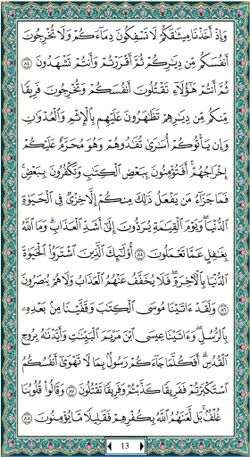 وَإِذْ أَخَذْنَا مِيثَٰقَكُمْ لَا تَسْفِكُونَ دِمَآءَكُمْ وَلَا تُخْرِجُونَ
أَنفُسَكُم مِّن دِيَٰرِكُمْ ثُمَّ أَقْرَرْتُمْ وَأَنتُمْ تَشْهَدُونَ ٨٤
ثُمَّ أَنتُمْ هَٰٓؤُلَآءِ تَقْتُلُونَ أَنفُسَكُمْ وَتُخْرِجُونَ فَرِيقًا
مِّنكُم مِّن دِيَٰرِهِمْ تَظَٰهَرُونَ عَلَيْهِم بِٱلْإِثْمِ وَٱلْعُدْوَٰنِ
وَإِن يَأْتُوكُمْ أُسَٰرَىٰ تُفَٰدُوهُمْ وَهُوَ مُحَرَّمٌ عَلَيْكُمْ
إِخْرَاجُهُمْ ۚ أَفَتُؤْمِنُونَ بِبَعْضِ ٱلْكِتَٰبِ وَتَكْفُرُونَ بِبَعْضٍ ۚ
فَمَا جَزَآءُ مَن يَفْعَلُ ذَٰلِكَ مِنكُمْ إِلَّا خِزْيٌ فِى ٱلْحَيَوٰةِ
ٱلدُّنْيَا ۖ وَيَوْمَ ٱلْقِيَٰمَةِ يُرَدُّونَ إِلَىٰٓ أَشَدِّ ٱلْعَذَابِ ۗ وَمَا ٱللَّهُ
بِغَٰفِلٍ عَمَّا تَعْمَلُونَ ٨٥ أُو۟لَٰٓئِكَ ٱلَّذِينَ ٱشْتَرَوُا۟ ٱلْحَيَوٰةَ
ٱلدُّنْيَا بِٱلْءَاخِرَةِ ۖ فَلَا يُخَفَّفُ عَنْهُمُ ٱلْعَذَابُ وَلَا هُمْ يُنصَرُونَ
٨٦ وَلَقَدْ ءَاتَيْنَا مُوسَى ٱلْكِتَٰبَ وَقَفَّيْنَا مِنۢ بَعْدِهِۦ
بِٱلرُّسُلِ ۖ وَءَاتَيْنَا عِيسَى ٱبْنَ مَرْيَمَ ٱلْبَيِّنَٰتِ وَأَيَّدْنَٰهُ بِرُوحِ
ٱلْقُدُسِ ۗ أَفَكُلَّمَا جَآءَكُمْ رَسُولٌۢ بِمَا لَا تَهْوَىٰٓ أَنفُسُكُمُ
ٱسْتَكْبَرْتُمْ فَفَرِيقًا كَذَّبْتُمْ وَفَرِيقًا تَقْتُلُونَ ٨٧ وَقَالُوا۟ قُلُوبُنَا
غُلْفٌۢ ۚ بَل لَّعَنَهُمُ ٱللَّهُ بِكُفْرِهِمْ فَقَلِيلًا مَّا يُؤْمِنُونَ ٨٨
13